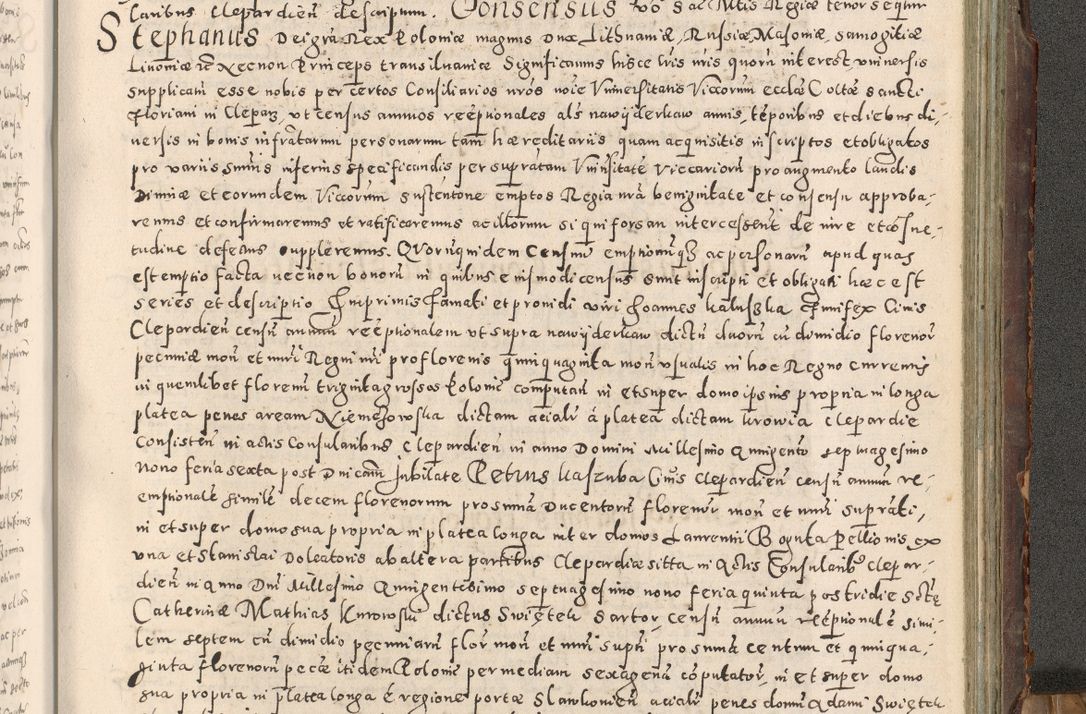 laribus Clepardien descriptum. Consensus vo S ac Mtis Regiae tenor sequitur
Stephanus Dei gra Rex Poloniae magnus Dux Lithuaniae, Russiae Masoviae, Samogitiae
Livoniae ec Necnon Princeps transilvaniae Significamus hisce lris nris quorum interest, universis
supplicatum esse nobis per certos Consiliarios nros noie Universitatis Viccorum ecclae Coltae sancti
Floriani in Cleparz, ut census annuos reemptionales als nawyderkaw annis, teporibus et diebus di-
versis in bonis infratarum personarum tam haereditariis quam acquisitis inscriptos et obligatos
pro variis summis inferius specificandis per supratam Universitate Viccariorum pro augmento laudis
Divinae et eorundem Viccorum sustentone emptos Regia nra benignitate et consensu approba-
remus et confirmaremus et ratificaremus ac illorum si qui forsan intercessent de iure et cosue-
tudine defectus suppleremus. Quorumquidem Censuum emptionumqz ac personarum apud quas
est emptio facta necnon bonorum in quibus eiusmodi census sunt inscripti et obligati haec est
series et descriptio Imprimis famati et providi viri Joannes kaluszka Carnifex Civis
Clepardien censum annuum reemptionalem ut supra nawyderkaw dictum duorum cu dimidio florenorum
pecuniae mon et nuri Regni nri pro florenis quinquaginta mon usualis in hoc Regno currenis
in quemlibet florenum triginta grossos Polonic computan in et super domo ipsius propria in longa
platea penes aream Niemczowska dictam acialr a platea dictam krowia Clepardie
consisten in actis Consularibus Clepardien in anno Domini Millesimo Quingento septuagesimo
nono feria sexta post Dnicam Jubilate Petrus kaszuba Civis Clepardien censum annuum re-
emptionale simile decem florenorum pro summa Ducentorum florenor mon et nuri suprati,
in et super domo sua propria in platea longa inter domos Laurentii Boguta Pellionis ex
una et Stanislai Doleatoris ab altera partibus Clepardiae sitta in Actis Consularibus Clepar-
dien in Anno Dni Millesimo Quingentesimo septuagesimo nono feria quinta postridie Scte
Catherinae Mathias Kurowski dictus Swietek sartor censum annuum reemptionale simi-
lem septem cu dimidio pecuniarum flor mon et nuri supti pro summa centum et quinqua-
ginta florenorum pecae itidem Polonic per mediam sexagena coputator, in et super domo
sua propria in platea longa e regione portae Slawkovien acialr penes domum Adami Swietek